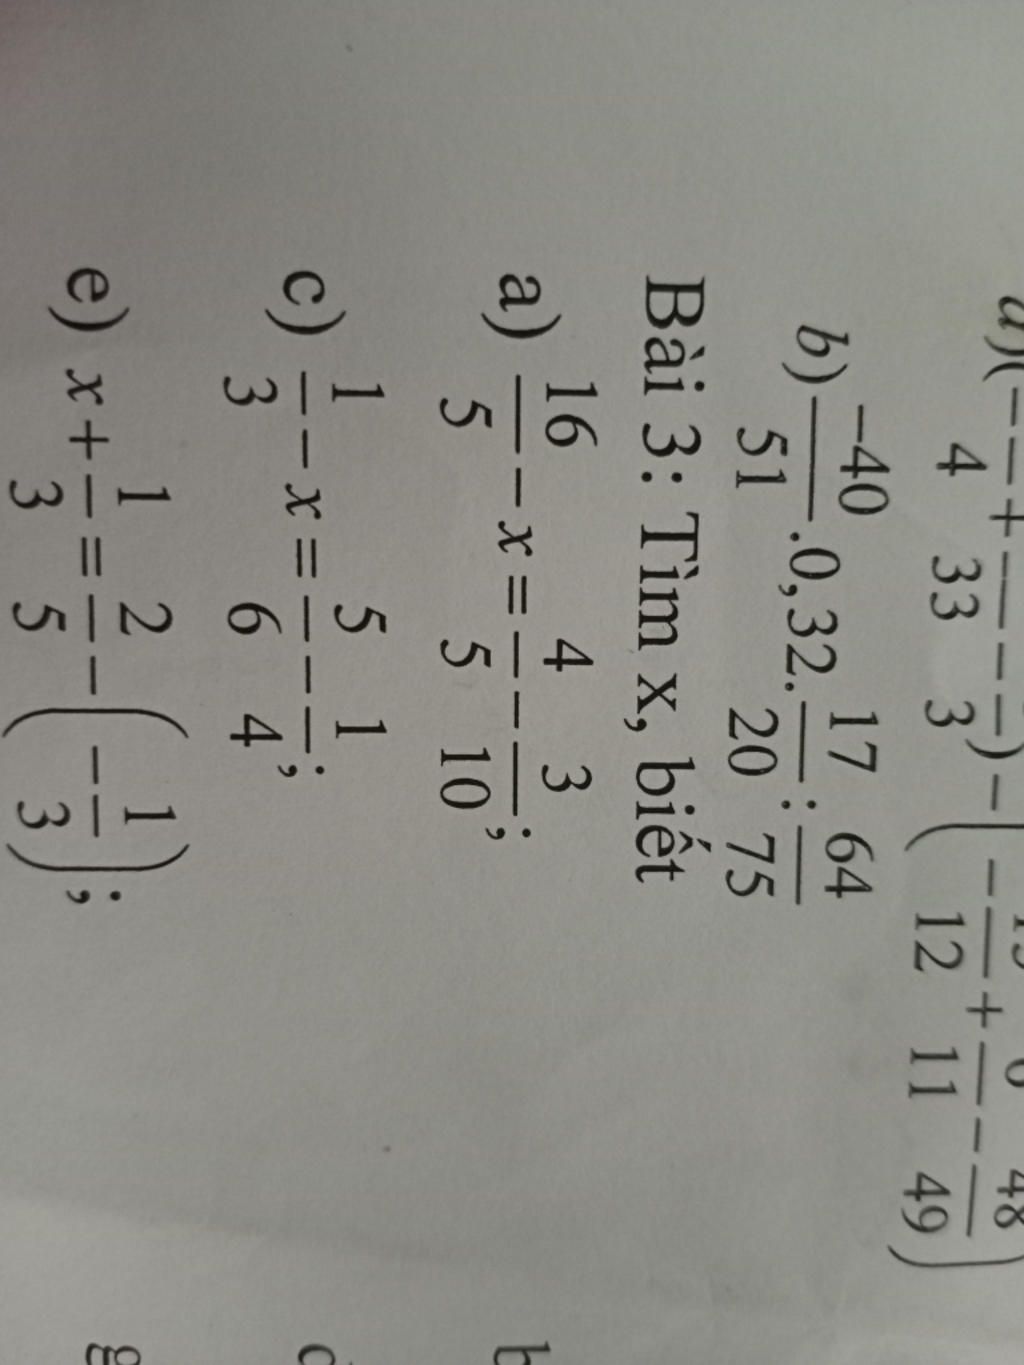 a)(-—/4 + —/33 - —/3) - (-15/12 + 6/11 - 48/49)
b) -40/51 .0,32. 17/20 : 64/75
Bài 3: Tìm x, biết
a) 16/5 - x = 4/5 - 3/10;
b
c) 1/3 - x = 5/6 - 1/4;
d
e) x + 1/3 = 2/5 - (-1/3);
g